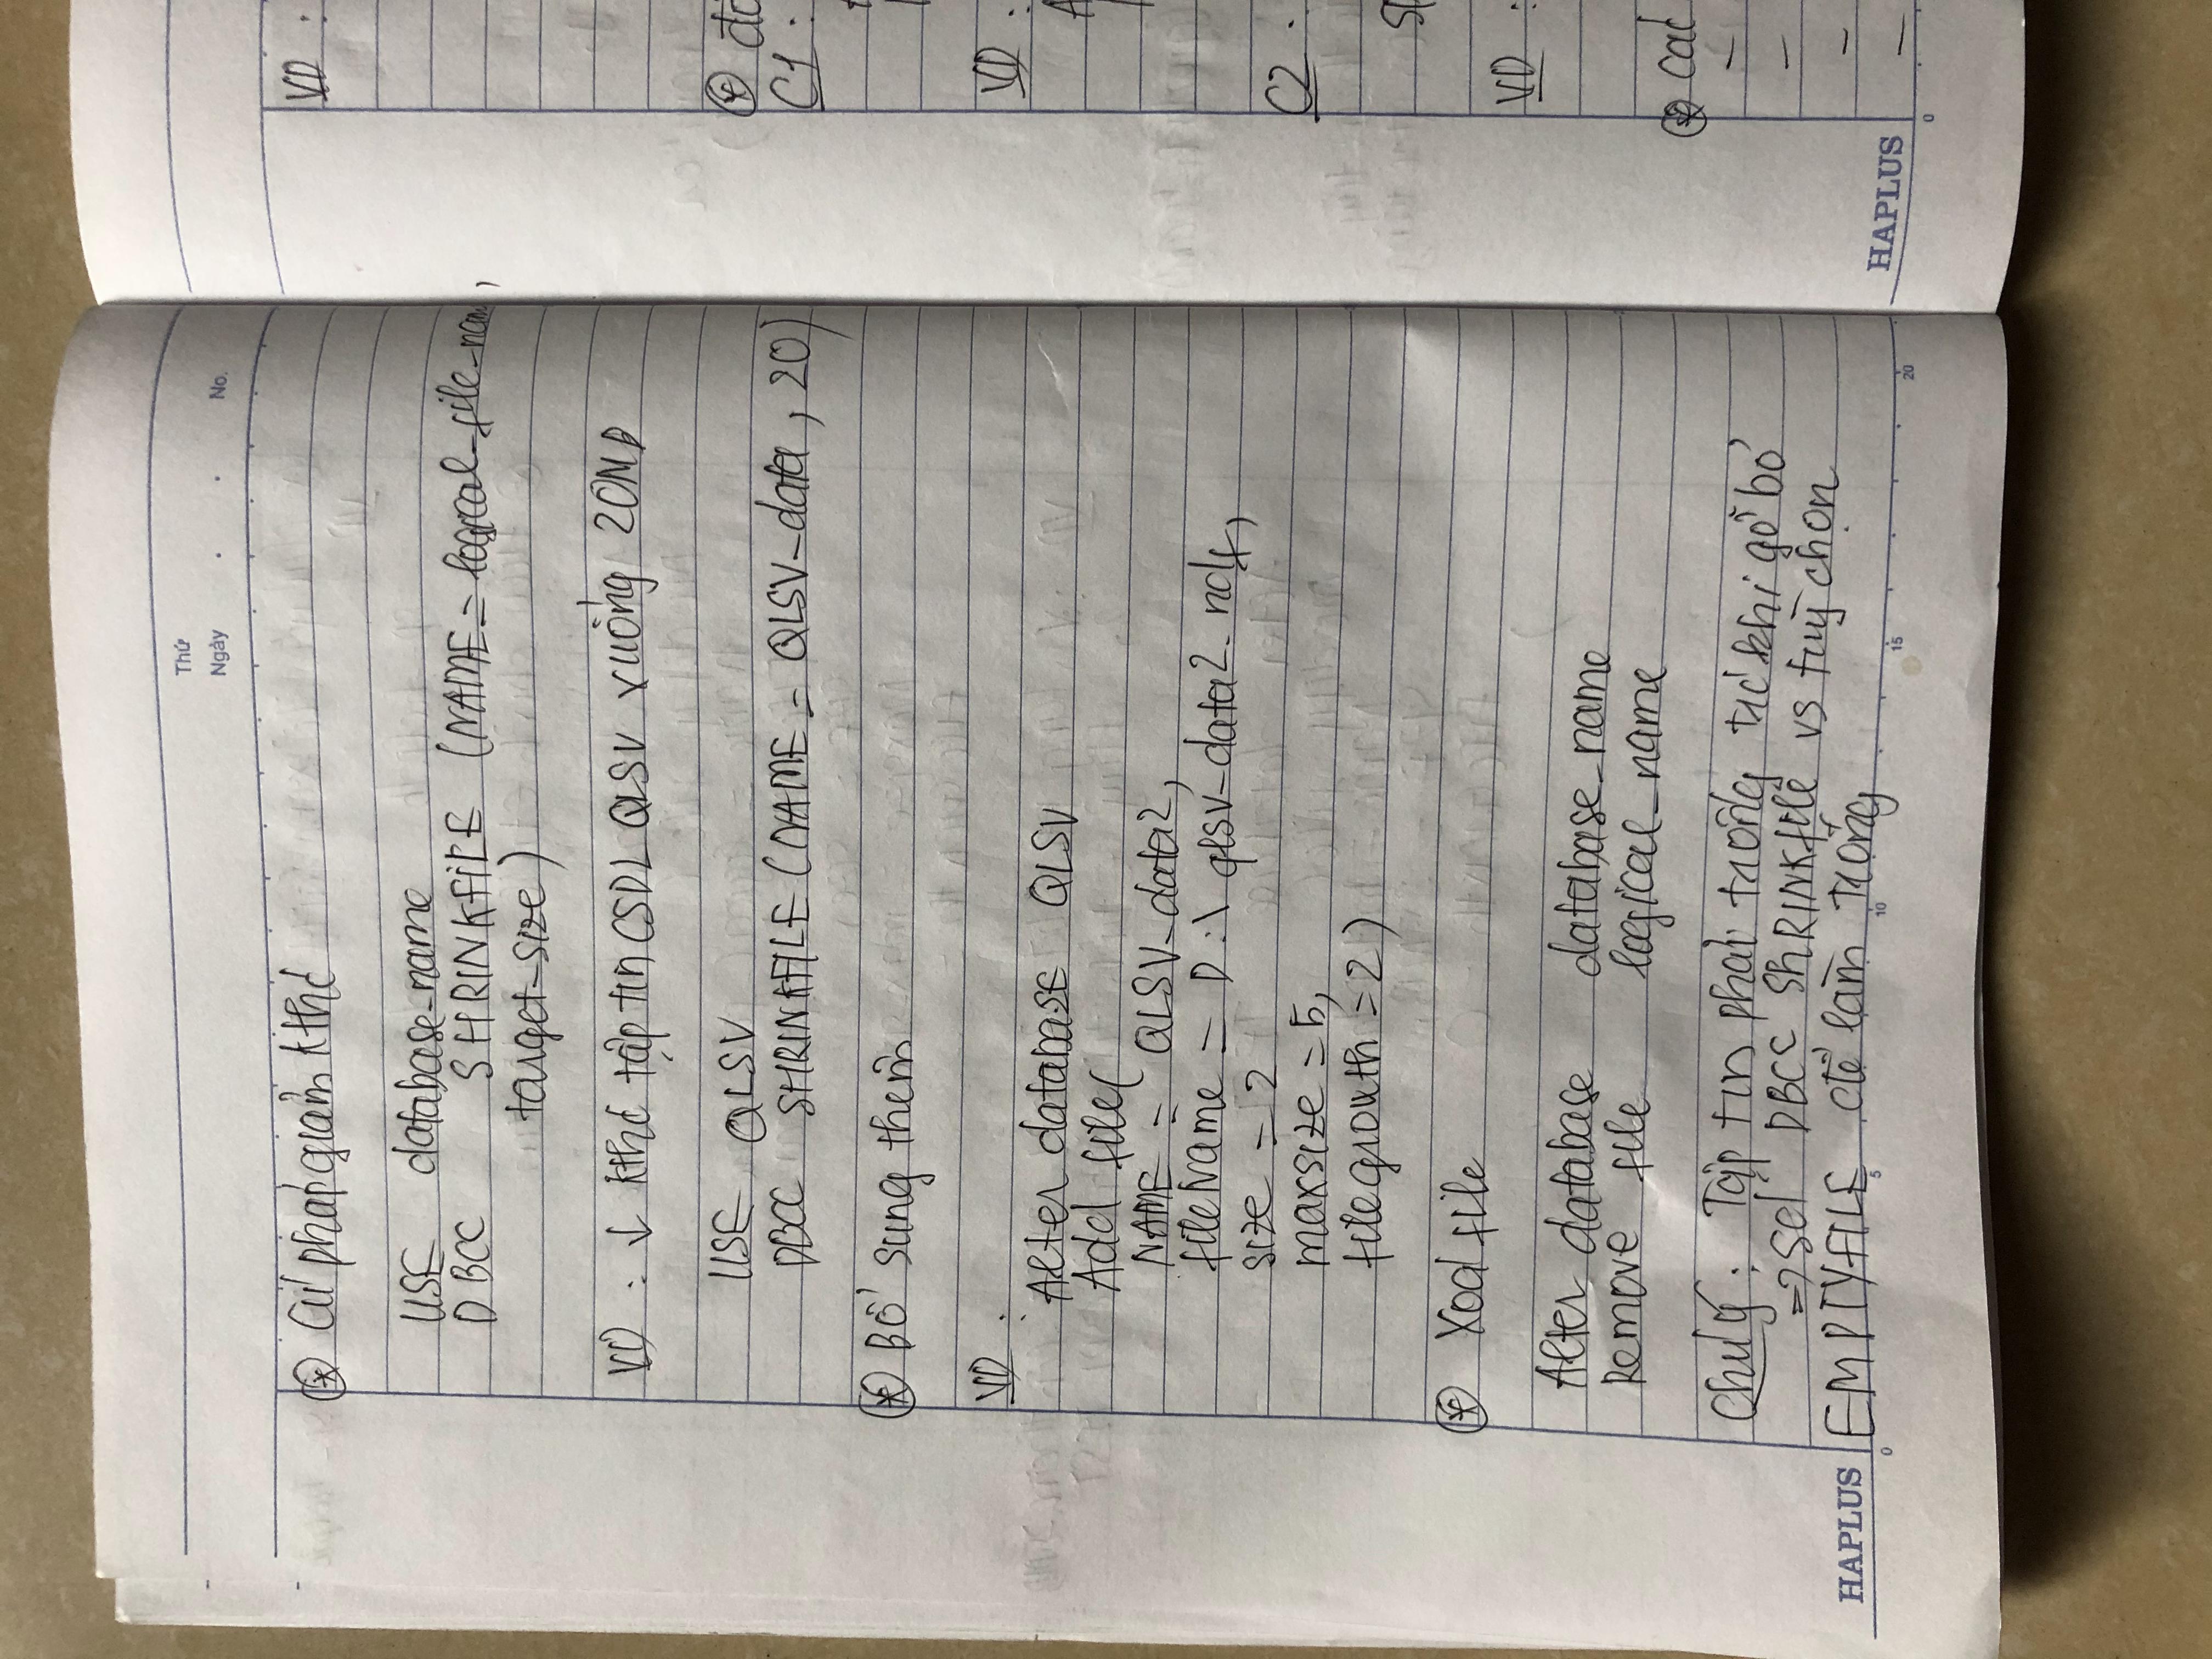 Thứ
Ngày . . No.
⊛ Cú pháp giảm kthc
USE database_name
DBCC SHRINKFILE (NAME = logical_file_nam,
target_size)
VD : ↓ kthc tập tin CSDL QLSV xuống 20MB
USE QLSV
DBCC SHRINKFILE (NAME = QLSV_data, 20)
⊛ Bổ sung thêm
VD :
Alter database QLSV
Add file(
NAME = QLSV_data2,
fileName = D:\ qlsv_data2.ndf,
size = 2
maxsize = 5,
filegrowth = 2)
⊛ Xoá file
Alter database database_name
Remove file logical_name
Chú ý : Tập tin phải trống trc khi gỡ bỏ
=> sd DBCC ShRINKfile vs tuỳ chọn
EMPTYFILE để làm trống
HAPLUS
0 5 10 15 20
VD :
⊛
C1 :
VD :
C2 :
VD :
⊛ các
-
-
-
-
HAPLUS
0